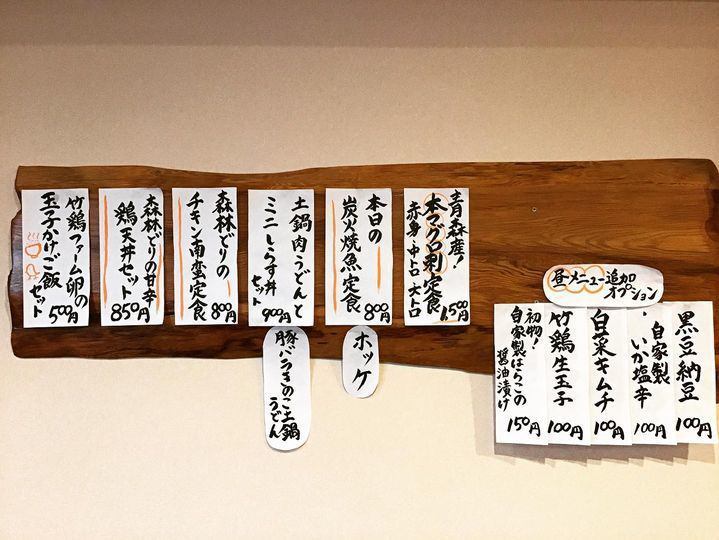 青森産!
本マグロ刺定食
赤身・中トロ・大トロ
1,500円
本日の
炭火焼魚定食
800円
ホッケ
土鍋肉うどんと
ミニしらす丼
セット
900円
豚バラきのこ土鍋
うどん
森林どりの
チキン南蛮定食
800円
森林どりの甘辛
鶏天丼セット
850円
竹鶏ファーム卵の
玉子かけご飯
セット
500円
昼メニュー追加
オプション
黒豆納豆
100円
自家製
いか塩辛
100円
白菜キムチ
100円
竹鶏生玉子
100円
初物!
自家製はらこの
醤油漬け
150円